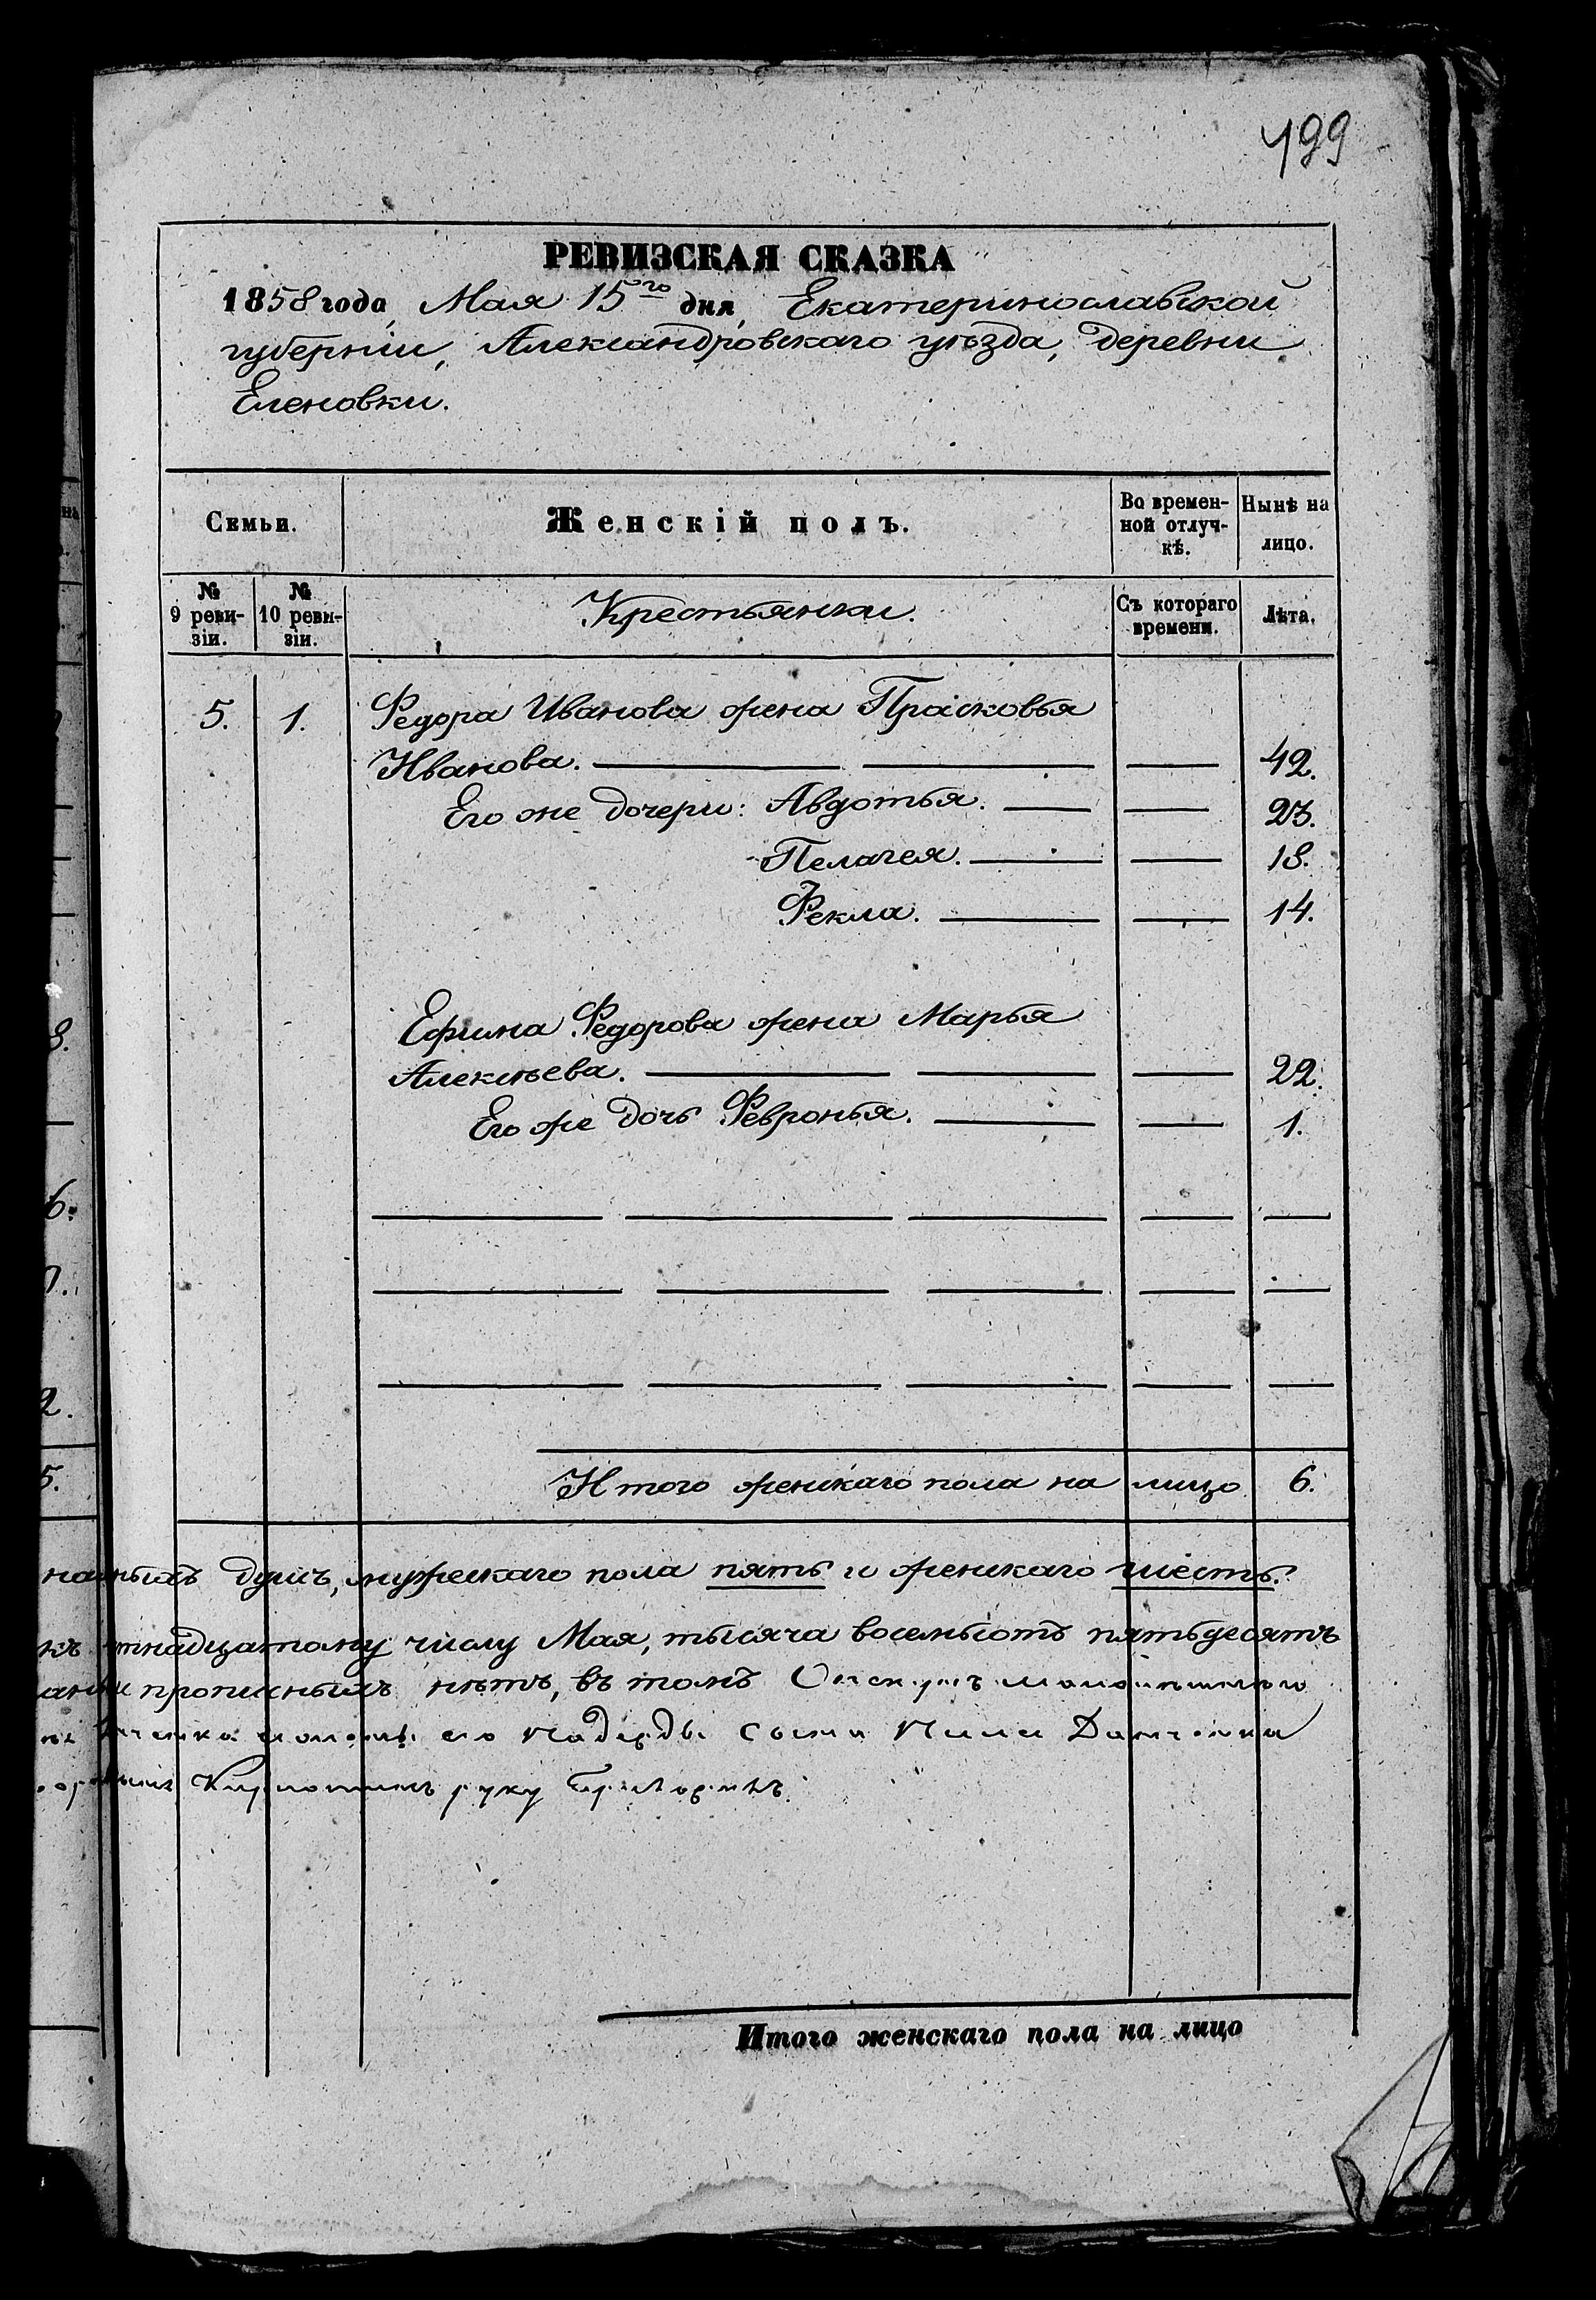 499
РЕВИЗСКАЯ СКАЗКА
1858 года, Мая 15го дня, Екатеринославской
губернии, Александровскаго уѣзда, деревни
Еленовки.
Семьи.
Женскій полъ.
Во времен-
ной отлуч-
кѣ.
Нынѣ на
лицо.
№
9 реви-
зіи.
№
10 реви-
зіи.
Крестьянки.
Съ котораго
времени.
Лѣта.
5. 1. Федора Иванова жена Прасковья
Иванова. 42.
Его же дочери: Авдотья. 23.
Пелагея. 18.
Фекла. 14.
Ефима Федорова жена Марья
Алексѣева. 22.
Его же дочь Февронья. 1.
Итого женскаго пола на лицо 6.
душъ, мужескаго пола пять и женскаго шесть.
къ числу Мая, тысяча восемьсотъ пятьдесятъ
прописныхъ нѣтъ, въ томъ
его сына
руку
Итого женскаго пола на лицо
8.
6.
2.
5.